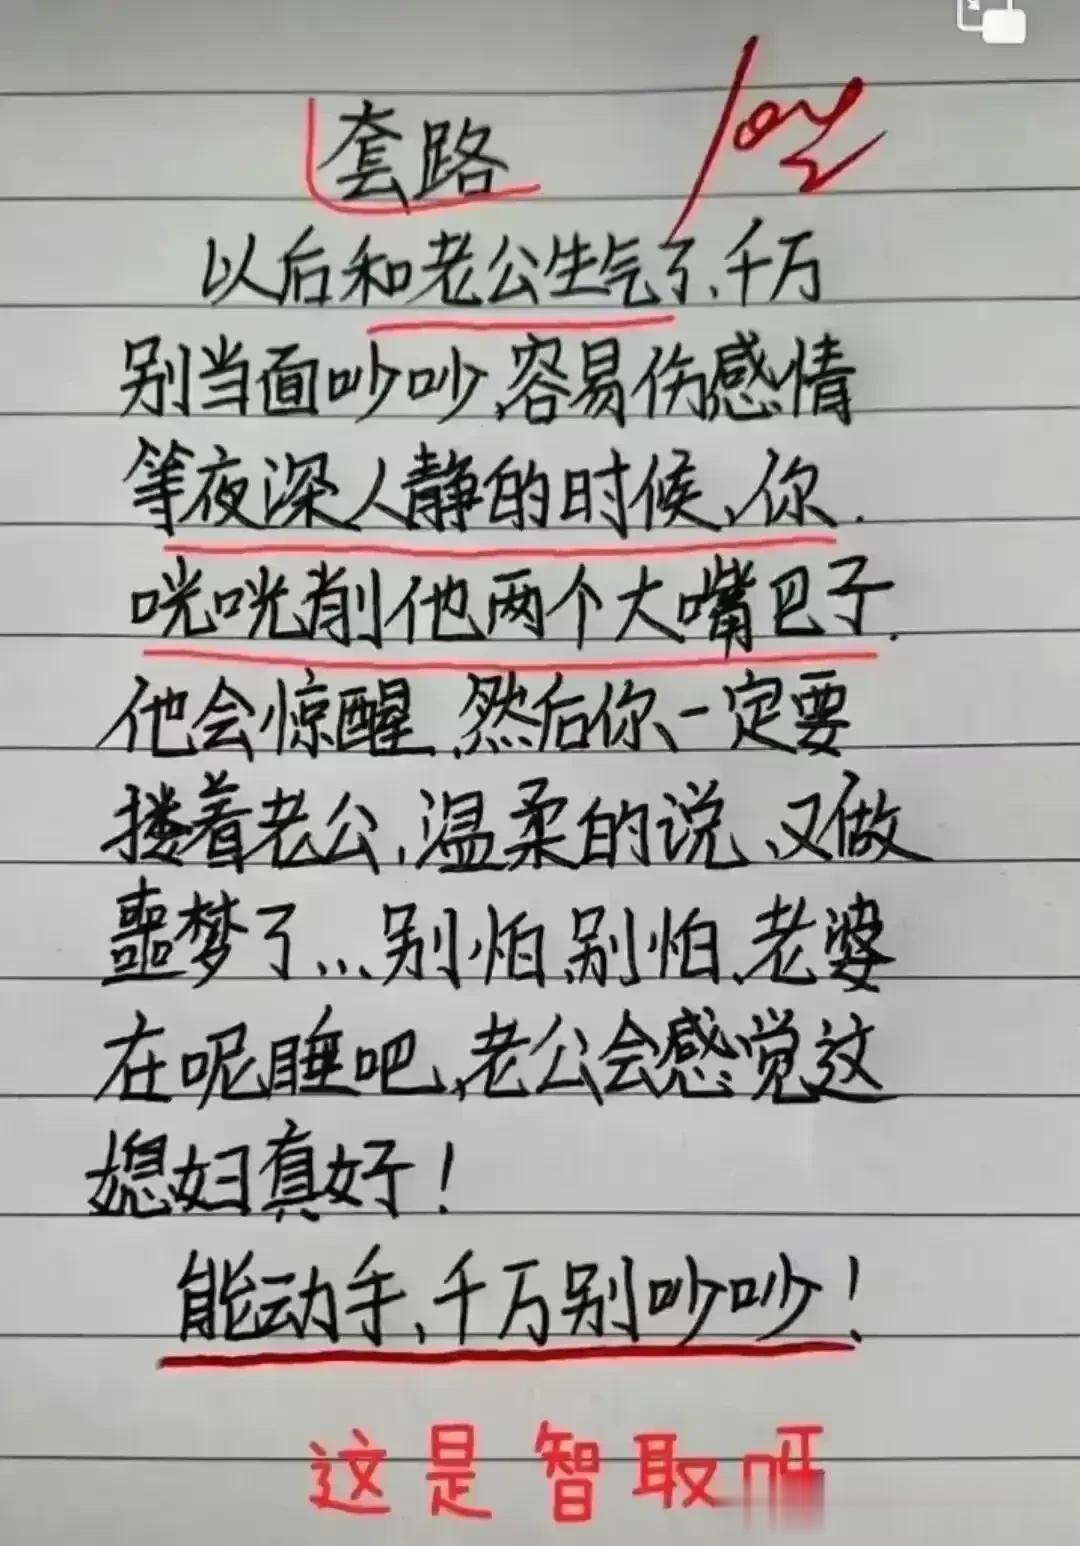 套路
以后和老公生气了、千万
别当面吵吵,容易伤感情
等夜深人静的时候、你.
咣咣削他两个大嘴巴子.
他会惊醒,然后你、一定要
搂着老公,温柔的说、又做
噩梦了...别怕,别怕、老婆
在呢睡吧、老公会感觉这
媳妇真好!
能动手、千万别吵吵!
这是智取呀